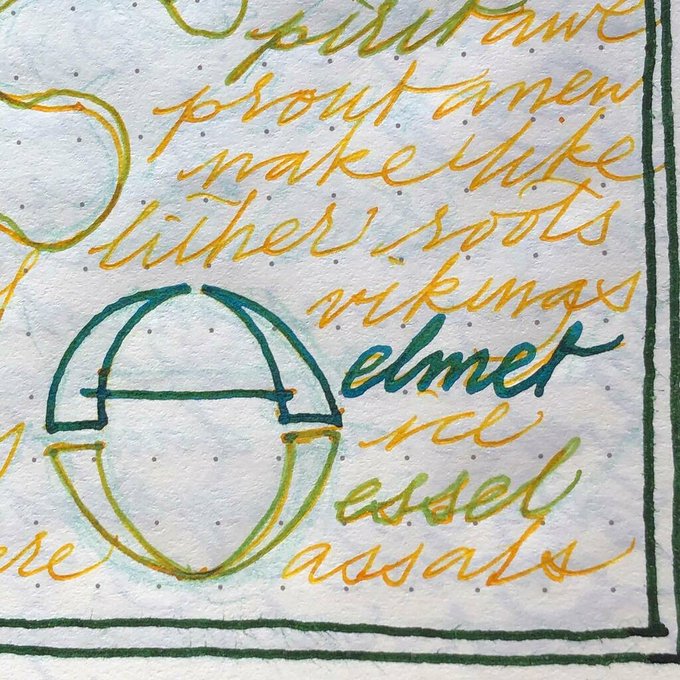 pirit awe
prout anew
nake like
lither roots
vikings
elmet
ice
essel
ere assals